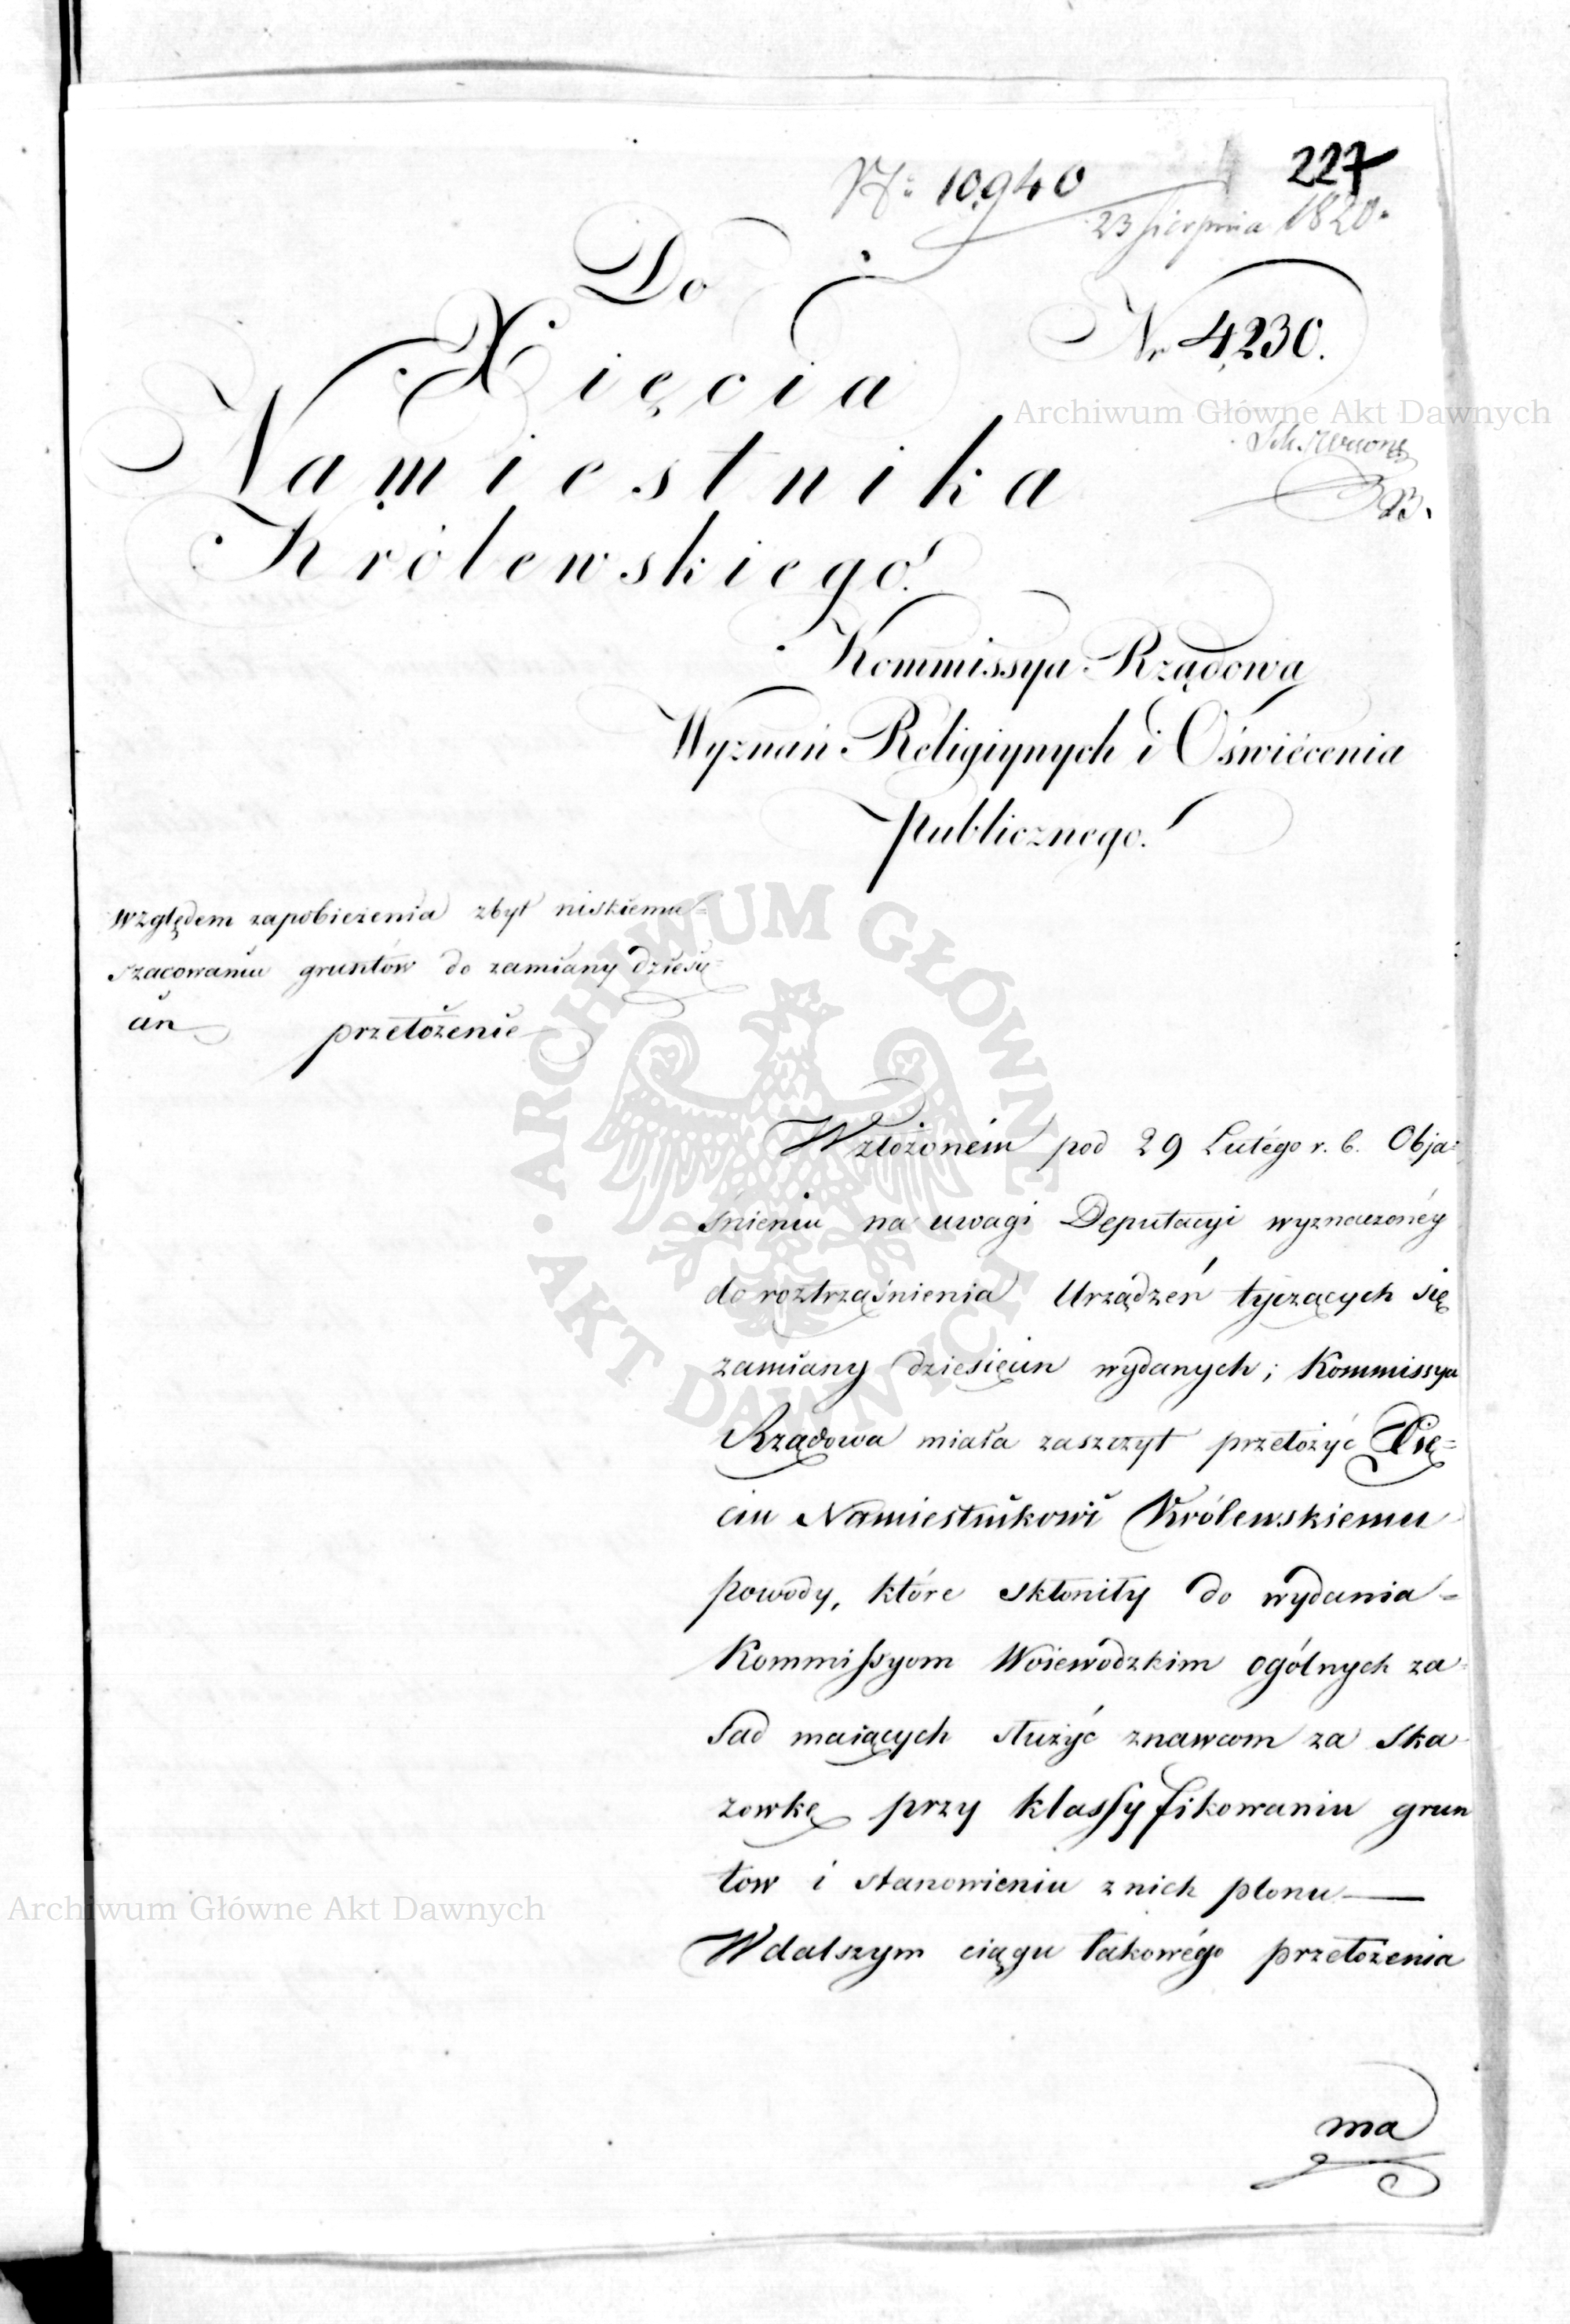 227
Nº 10,940
23 Sierpnia 1820.
Do
Nr 4,230.
Xięcia
Archiwum Główne Akt Dawnych
Namiestnika
B.
Królewskiego.
Kommissya Rządowa
Wyznań Religiynych i Oświécenia
Publicznego.
względem zapobieżenia zbyt niskiemu=
szacowaniu gruntów do zamiany dziesię=
cin przełożenie
ARCHIWUM GŁÓWNE · AKT DAWNYCH ·
W złożoném pod 29 Lutégo r. b. Obja=
śnieniu na uwagi Deputacyi wyznaczonéy
do roztrząśnienia Urządzeń tyczących się
zamiany dziesięcin wydanych; Kommissya
Rządowa miała zaszczyt przełożyć Xię=
ciu Namiestnikowi Królewskiemu
powody, które skłoniły do wydania=
Kommissyom Woiewodzkim ogólnych za=
sad maiących służyć znawcom za ska
zowkę przy klassyfikowaniu grun
tow i stanowieniu z nich plonu —
Archiwum Główne Akt Dawnych
W dalszym ciągu takowégo przełożenia
ma